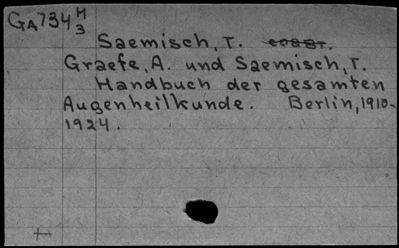 GA734 H3
Saemisch, T.
Graefe, A. und Saemisch, T.
Handbuch der gesamten
Augenheilkunde. Berlin, 1910-
1924.